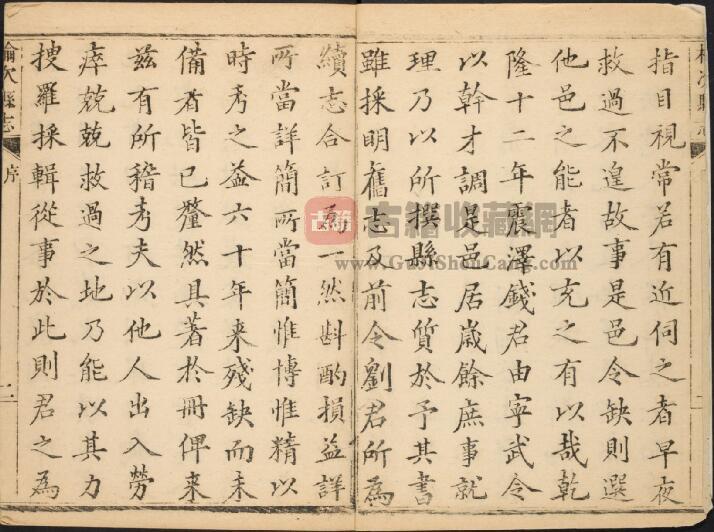 指目視常若有近伺之者早夜
救過不遑故事是邑令缺則選
他邑之能者以充之有以哉乾
隆十二年震澤錢君由寧武令
以幹才調是邑居歲餘庶事就
理乃以所撰縣志質於予其書
雖採明舊志及前令劉君所爲
續志合訂爲一然斟酌損益詳
所當詳簡所當簡惟博惟精以
時考之益六十年来殘缺而未
備者皆已釐然具著於冊俾来
茲有所稽考夫以他人出入勞
瘁兢兢救過之地乃能以其力
搜羅採輯從事於此則君之爲
榆次縣志
序
二
古籍
古籍收藏網
www.GuJiShouCang.com